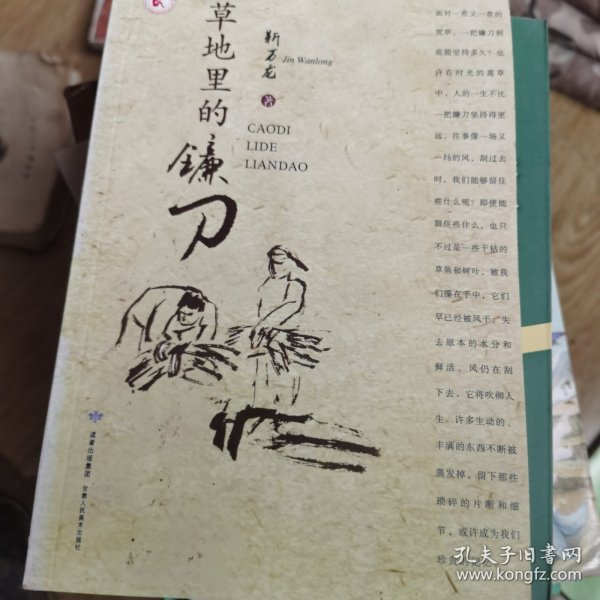 草地里的
镰刀
靳万龙
Jin Wanlong
著
CAODI
LIDE
LIANDAO
面对一茬又一茬的
荒草，一把镰刀到
底能坚持多久？也
许在时光的蒿草
中，人的一生不比
一把镰刀坚持得更
远。往事像一场又
一场的风，刮过去
时，我们能够留住
些什么呢？即使能
留住些什么，也只
不过是一些干枯的
草屑和树叶，被我
们攥在手中，它们
早已经被风干，失
去原本的水分和
鲜活。风仍在刮
下去，它将吹彻人
生。许多生动的、
丰满的东西不断被
蒸发掉，留下那些
琐碎的片断和细
节，或许成为我们
珍
读者出版集团
甘肃人民美术出版社
孔夫子旧书网
www.kongfz.com